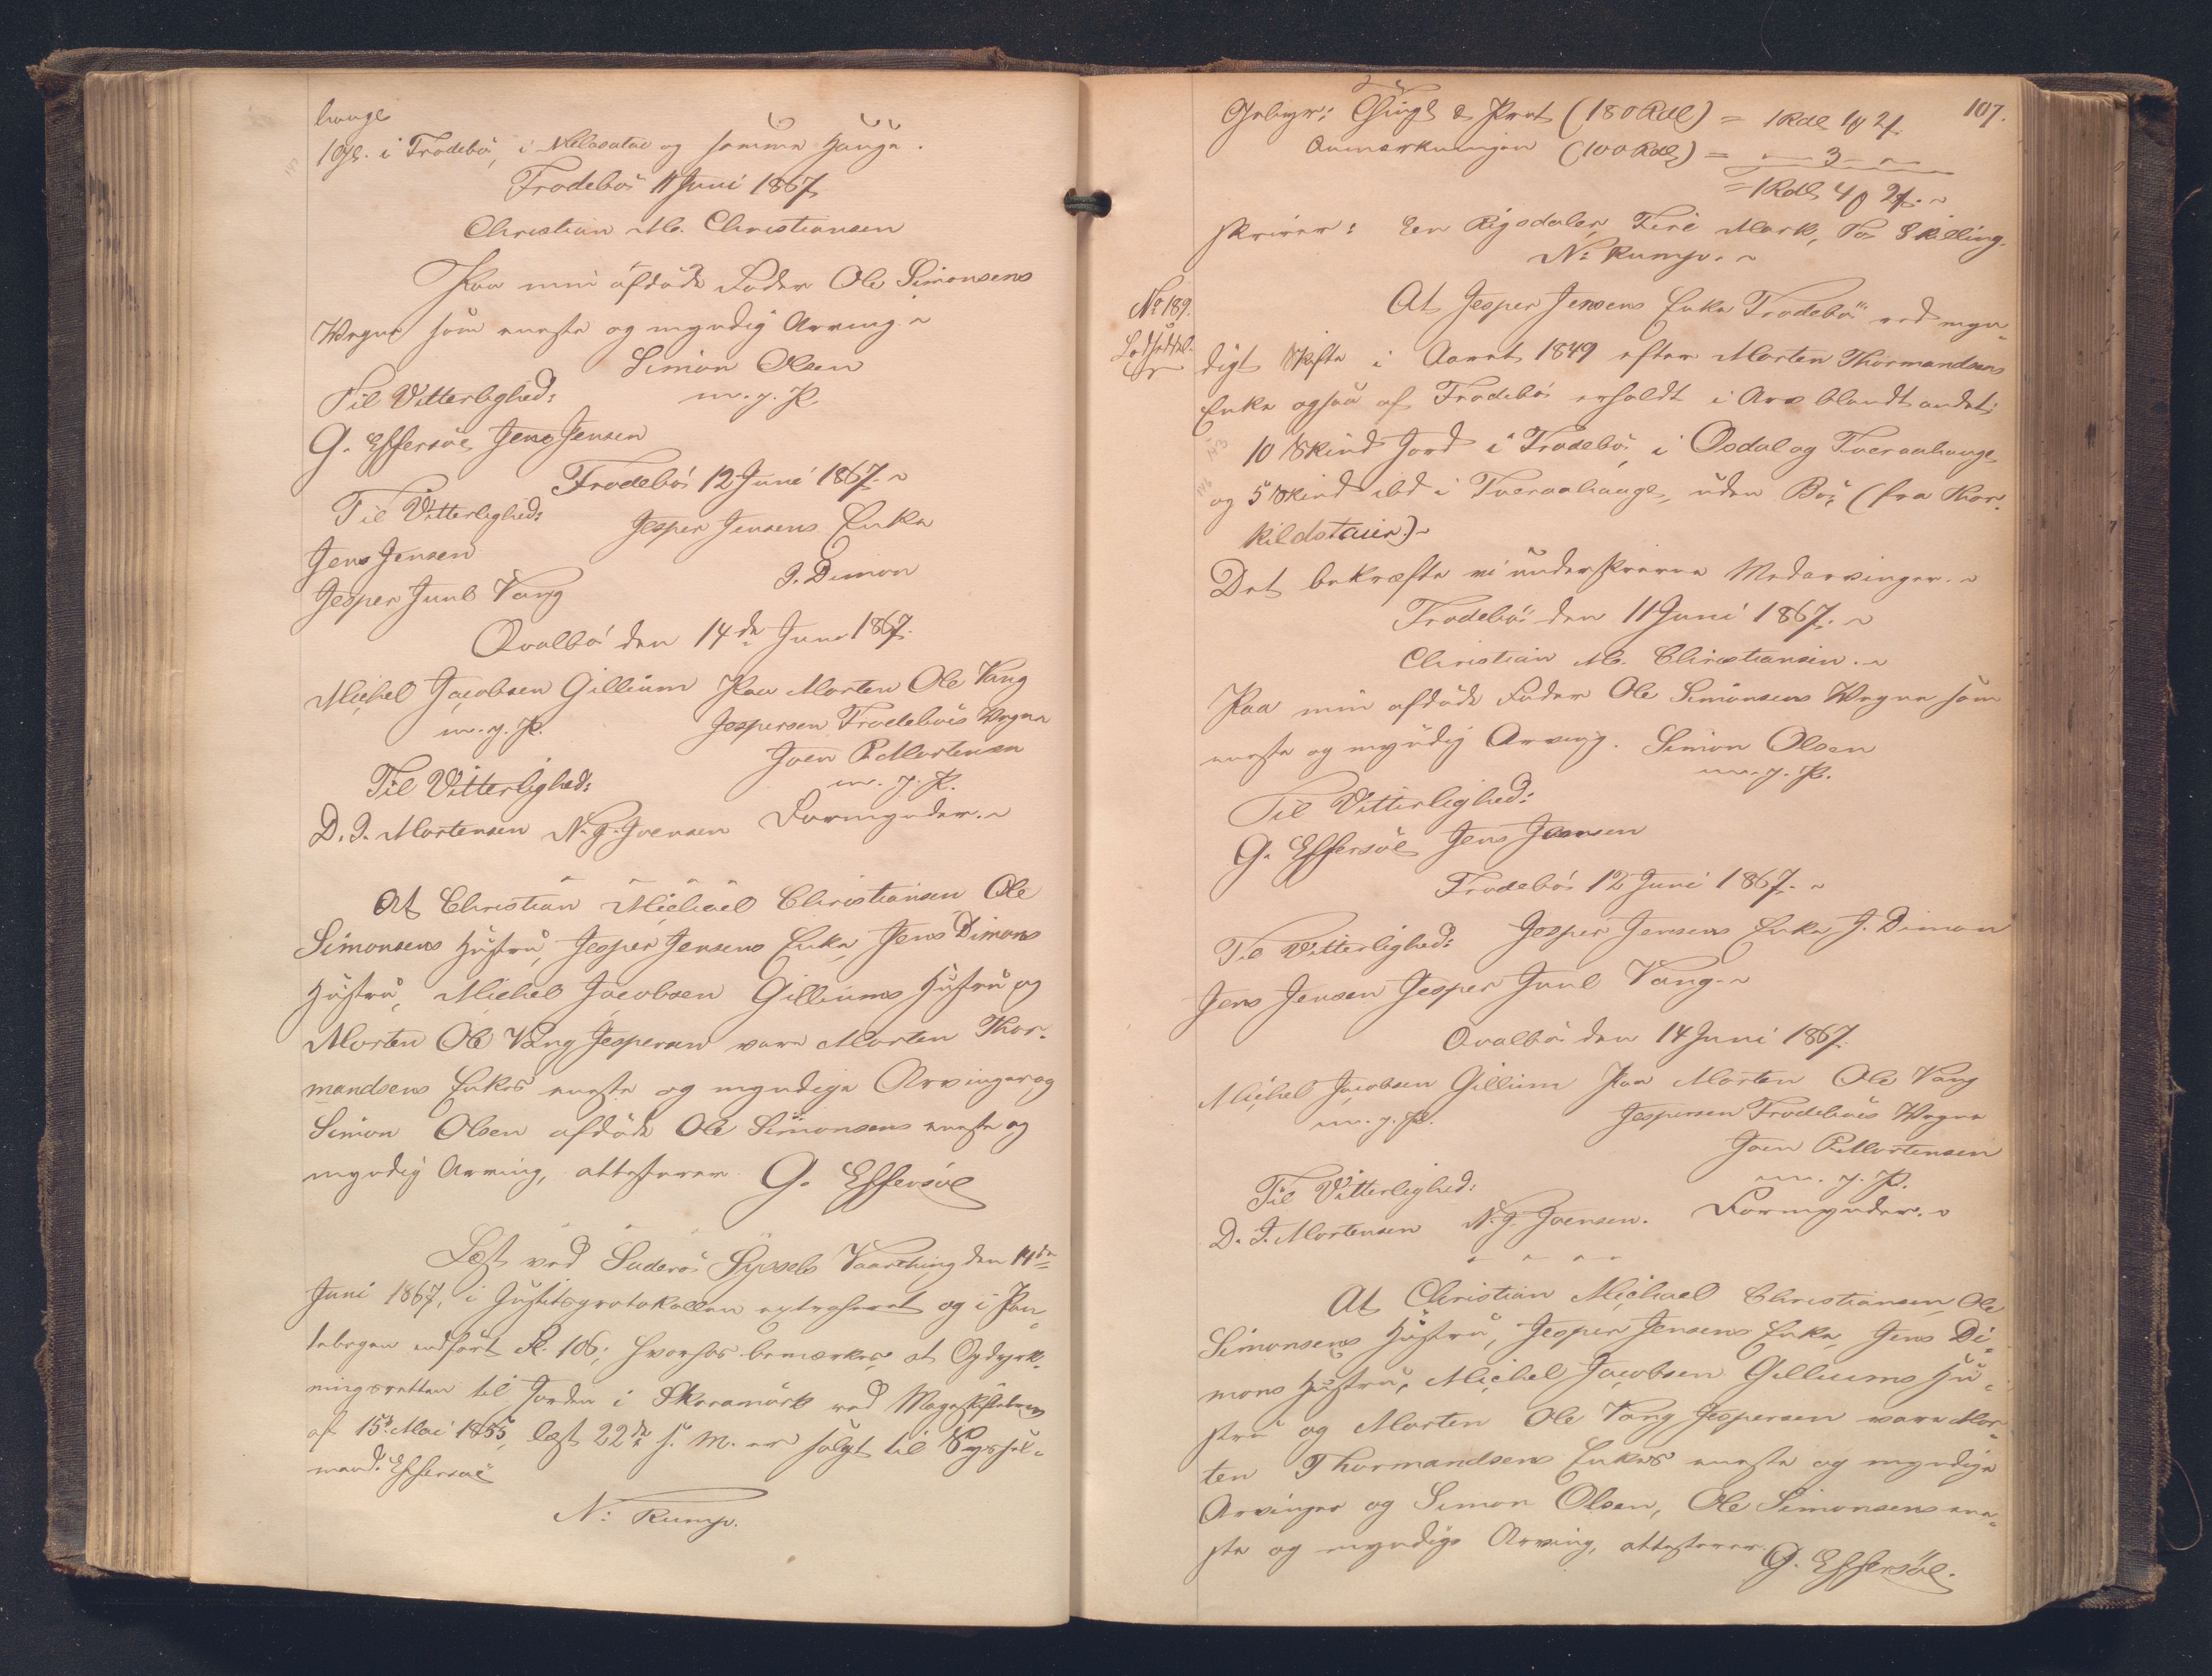 hauge
10 Gl. i Frodebö, i Nelasatae og samme Hauge.
Frodebö 11 Juni 1867
Christian M. Christiansen
Paa min afdöde Fader Ole Simonsens
Vegne som eneste og myndig Arving.
Simon Olsen
Til Vitterlighed: m. f. P.
G. Effersöe Jens Jensen
Frodebö 12 Juni 1867.
Til Vitterlighed: Jesper Jensens Enke
Jens Jensen J. Dimon
Jesper Juul Vang
Qvalbö den 14de Juni 1867.
Michel Jacobsen Gillium Paa Morten Ole Vang
m. f. P. Jespersen Frodeböes Vegne
Joen P. Mortensen
Til Vitterlighed: m. f. P.
D. J. Mortensen N. J. Joensen Formynder.
At Christian Michael Christiansen, Ole
Simonsens Hustru, Jesper Jensens Enke, Jens Dimons
Hustru, Michel Jacobsen Gilliums Hustru og
Morten Ole Vang Jespersen vare Morten Thor-
mandsens Enkes eneste og myndige Arvinger og
Simon Olsen afdöde Ole Simonsens eneste og
myndig Arving, attesterer G. Effersöe
Læst ved Suderö Syssels Vaarthing den 14de
Juni 1867, i Justitsprotokollen extraheret og i Pan-
tebogen indfört S. 106; hvorhos bemærkes at Opdyrk-
ningsretten til Jorden i Skoramörk ved Mageskiftebrev
af 15de Mai 1855, læst 22de s. M. er solgt til Syssel-
mand Effersöe
N: Rump.
107.
Gebyr: Thingl & Prot (180 Rdl) = 1 Rdl 1 ₰ 2 ſ.
Anmærkningen (100 Rdl) = — 3 — —
= 1 Rdl 4 ₰ 2 ſ.
skriver: Een Rigsdaler, Fire Mark, To Skilling.
N: Rump.
No 189.
Lodseddel.
At Jesper Jensens Enke Frodebö ved myn-
digt Skifte i Aaret 1849 efter Morten Thormandsens
Enke ogsaa af Frodebö erholdt i Arv blandt andet:
10 Skind Jord i Frodebö, i Oedal og Tveraahauge
og 5 Skind ibd i Tveraahauge, uden Bö; (fra Thor-
kildstaier)
Det bekræfte vi underskrevne Medarvinger.
Frodebö den 11 Juni 1867.
Christian M. Christiansen.
Paa min afdöde Fader Ole Simonsens Vegne som
eneste og myndig Arving. Simon Olsen
m. f. P.
Til Vitterlighed:
G. Effersöe Jens Jensen
Frodebö 12 Juni 1867.
Til Vitterlighed: Jesper Jensens Enke J. Dimon
Jens Jensen Jesper Juul Vang
Qvalbö den 14 Juni 1867.
Michel Jacobsen Gillium Paa Morten Ole Vang
m. f. P. Jespersen Frodeböes Vegne
Joen P. Mortensen
Til Vitterlighed: m. f. P.
D. J. Mortensen N. J. Joensen. Formynder.
At Christian Michael Christiansen, Ole
Simonsens Hustru, Jesper Jensens Enke, Jens Di-
mons Hustru, Michel Jacobsen Gilliums Hu-
stru og Morten Ole Vang Jespersen vare Mor-
ten Thormandsens Enkes eneste og myndige
Arvinger og Simon Olsen, Ole Simonsens ene-
ste og myndige Arving, attesterer.
G. Effersöe.